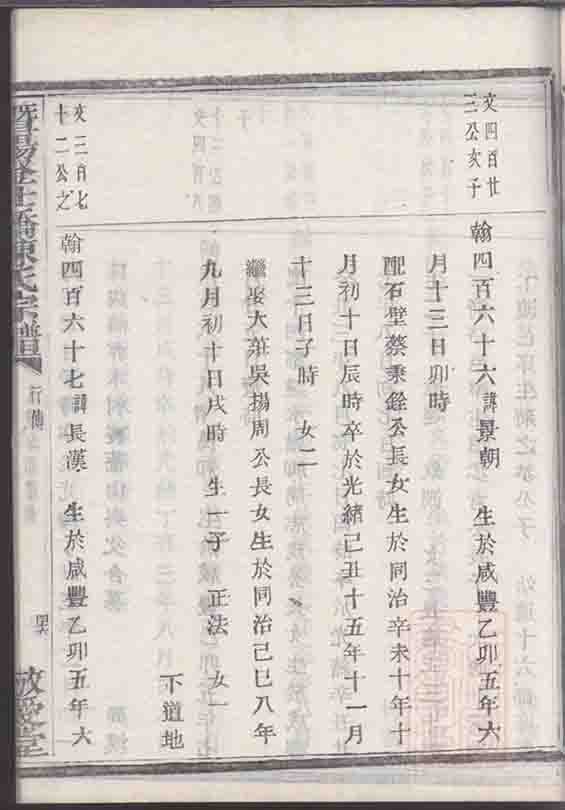 文四百廿
三公次子
翰四百六十六諱景朝 生於咸豐乙卯五年六
月十三日卯時
配石壁蔡秉銓公長女生於同治辛未十年十
月初十日辰時卒於光緒己丑十五年十一月
十三日子時 女二
繼娶大葉吳揚周公長女生於同治己巳八年
九月初十日戌時 生一子 正法 女一
下道地
文三百七
十二公之
翰四百六十七諱長漢 生於咸豐乙卯五年六
暨陽 陳氏宗譜
行傳
敬愛堂